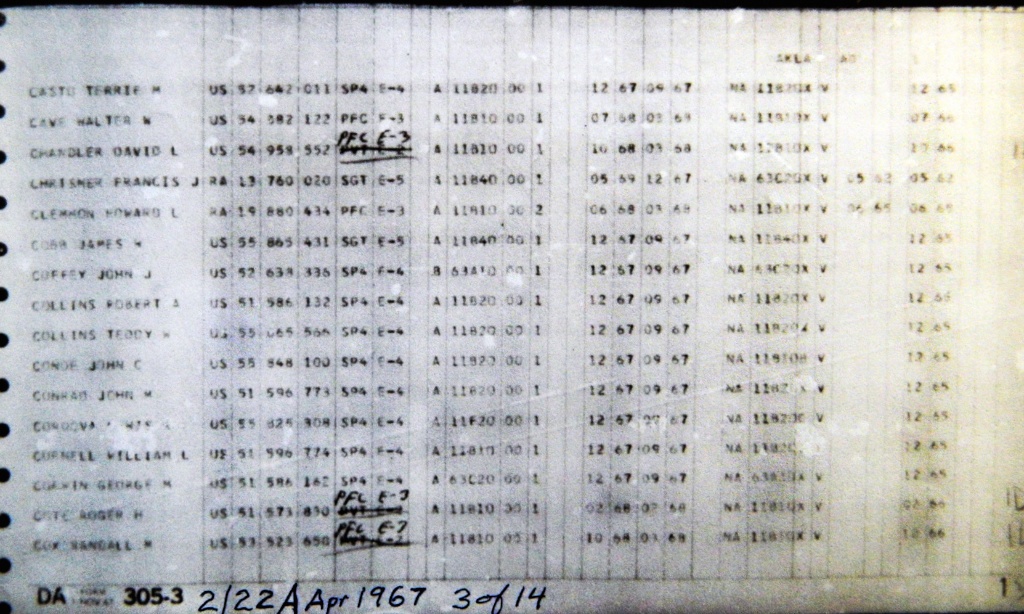 AKLA AO
CASTO TERRIE M US 52 642 011 SP4 E-4 A 11B20 00 1 12 67 09 67 NA 11B20X V 12 65
CAVE WALTER W US 54 382 122 PFC E-3 A 11B10 00 1 07 68 03 68 NA 11B10X V 07 66
PFC E-3
CHANDLER DAVID L US 54 958 552 A 11B10 00 1 10 68 03 68 NA 11B10X V 10 66
CHRISMER FRANCIS J RA 13 760 020 SGT E-5 A 11B40 00 1 05 69 12 67 NA 63C20X V 05 62 05 62
CLEMMON HOWARD L RA 19 880 434 PFC E-3 A 11B10 00 2 06 68 03 68 NA 11B10X V 06 65 06 65
COBB JAMES W US 55 865 431 SGT E-5 A 11B40 00 1 12 67 09 67 NA 11B40X V 12 65
COFFEY JOHN J US 52 638 336 SP4 E-4 B 63A10 00 1 12 67 09 67 NA 63C20X V 12 65
COLLINS ROBERT A US 51 586 132 SP4 E-4 A 11B20 00 1 12 67 09 67 NA 11B20X V 12 65
COLLINS TEDDY US 55 566 SP4 E-4 A 11B20 00 1 12 67 09 67 NA V 12 65
CONDE JOHN C US 55 848 100 SP4 E-4 A 11B20 00 1 12 67 09 67 NA V 12 65
CONRAD JOHN M US 51 596 773 SP4 E-4 A 11B20 00 1 12 67 09 67 NA V 12 65
CORDOVA US 55 825 308 SP4 E-4 A 11B20 00 1 12 67 09 67 NA V 12 65
CORNELL WILLIAM L US 51 596 774 SP4 E-4 A 11B10 00 1 12 67 09 67 NA V 12 65
CORWIN GEORGE M US 51 586 162 SP4 E-4 A 63C20 00 1 12 67 09 67 NA V 12 65
PFC E-3
COTE ROGER H US 51 573 830 A 11B10 00 1 02 68 02 68 NA 11B10X V 02 66
PFC E-3
COX RANDALL M US 53 523 650 A 11B10 00 1 10 68 03 68 NA 11B10X V 10 66
DA FORM 305-3 2/22 A Apr 1967 3 of 14